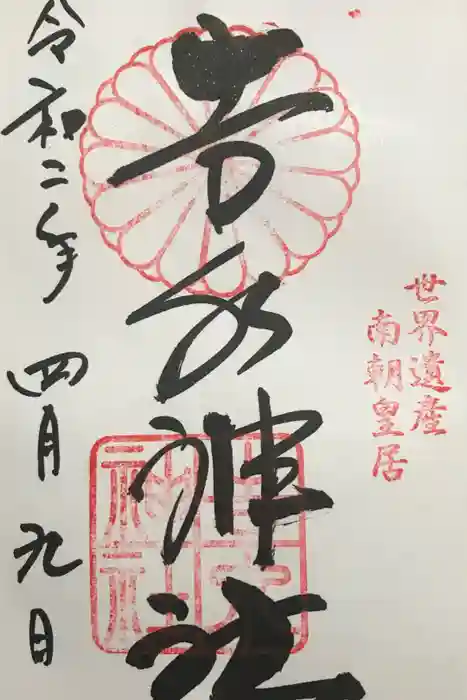 世界遺産
南朝皇居
吉水神社
吉水
神社
令和二年 四月九日